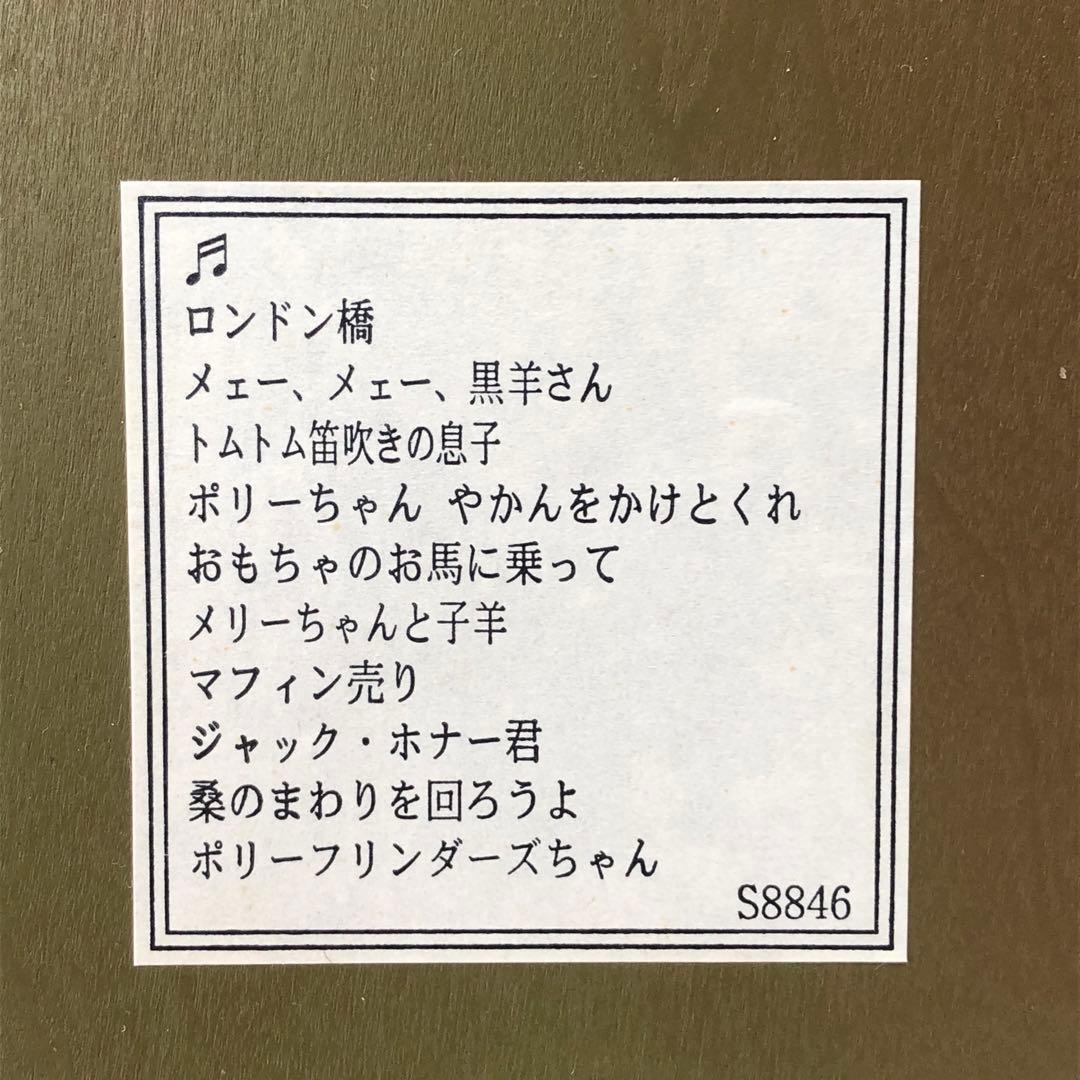 ♬
ロンドン橋
メェー、メェー、黒羊さん
トムトム笛吹きの息子
ポリーちゃん やかんをかけとくれ
おもちゃのお馬に乗って
メリーちゃんと子羊
マフィン売り
ジャック・ホナー君
桑のまわりを回ろうよ
ポリーフリンダーズちゃん
S8846